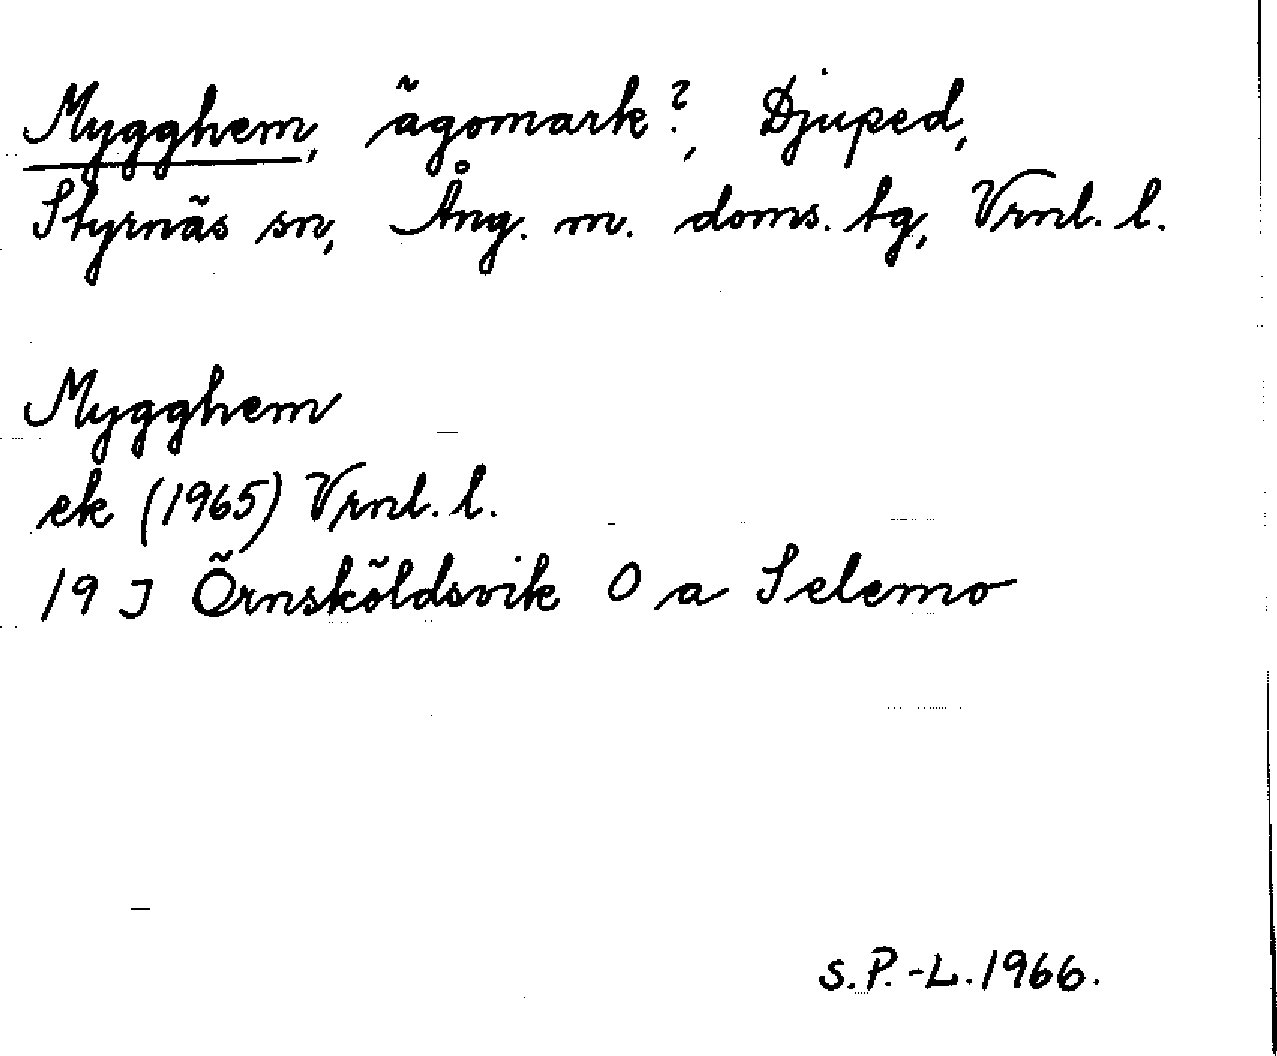 Mygghem, ägomark?, Djuped,
Styrnäs sn, Ång. m. doms. tg, Vrnl. l.
Mygghem
ek (1965) Vrnl. l.
19 J Örnsköldsvik 0 a Selemo
S.P.-L. 1966.